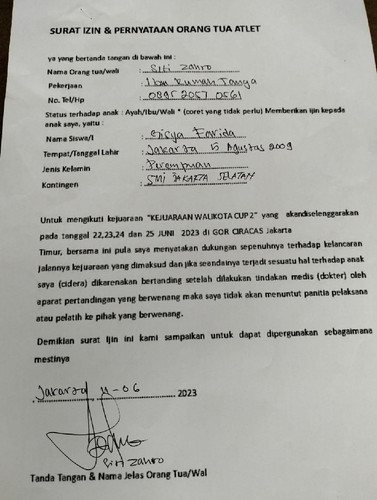 SURAT IZIN & PERNYATAAN ORANG TUA ATLET
ya yang bertanda tangan di bawah ini :
Nama Orang tua/wali : Siti Zahro
Pekerjaan : Ibu Rumah Tangga
No. Tel/Hp : 0895 2057 0561
Status terhadap anak : Ayah/Ibu/Wali * (coret yang tidak perlu) Memberikan ijin kepada
anak saya, yaitu :
Nama Siswa/I : Farida
Tempat/Tanggal Lahir : Jakarta 5 Agustus 2009
Jenis Kelamin : Perempuan
Kontingen : SMI JAKARTA SELATAN
Untuk mengikuti kejuaraan "KEJUARAAN WALIKOTA CUP 2" yang akandiselenggarakan
pada tanggal 22,23,24 dan 25 JUNI 2023 di GOR CIRACAS Jakarta
Timur, bersama ini pula saya menyatakan dukungan sepenuhnya terhadap kelancaran
jalannya kejuaraan yang dimaksud dan jika seandainya terjadi sesuatu hal terhadap anak
saya (cidera) dikarenakan bertanding setelah dilakukan tindakan medis (dokter) oleh
aparat pertandingan yang berwenang maka saya tidak akan menuntut panitia pelaksana
atau pelatih ke pihak yang berwenang.
Demikian surat Ijin ini kami sampaikan untuk dapat dipergunakan sebagaimana
mestinya
Jakarta - 06 2023
Siti Zahro
Tanda Tangan & Nama Jelas Orang Tua/Wal